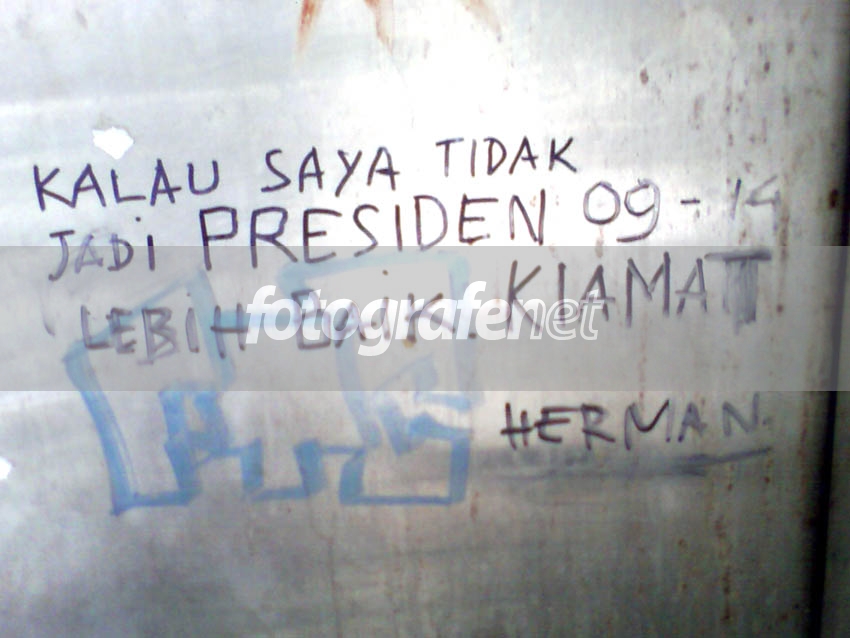 KALAU SAYA TIDAK
JADI PRESIDEN 09-14
LEBIH BAIK KIAMAT
fotografenet
HERMAN